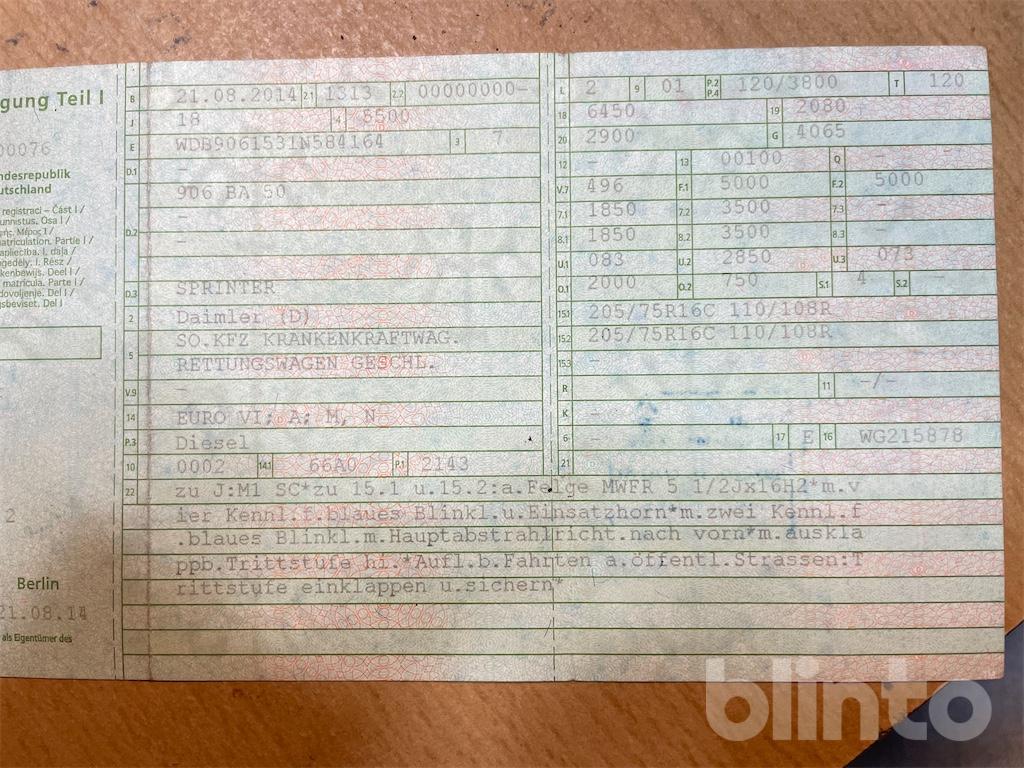 gung Teil I
00076
ndesrepublik
eutschland
registraci – Část I /
unnistus. Osa I /
ής. Μέρος I /
atriculation. Partie I /
apliecība. I. daļa /
gedély. I. Rész /
kenbewijs. Deel I /
matrícula. Parte I /
dovoljenje. Del I /
gsbeviset. Del I
2
Berlin
21.08.14
als Eigentümer des
B 21.08.2014 2.1 1313 2.2 00000000-
J 18 4 5500
E WDB9061531N584164 3 7
D.1 -
906 BA 50
D.2 -
-
D.3 SPRINTER
2 Daimler (D)
5 SO.KFZ KRANKENKRAFTWAG.
RETTUNGSWAGEN GESCHL.
V.9 -
14 EURO VI; A; M, N
P.3 Diesel
10 0002 14.1 66A0 P.1 2143
L 2 9 01 P.2 P.4 120/3800 T 120
18 6450 19 2080
20 2900 G 4065
12 - 13 00100 Q -
V.7 496 F.1 5000 F.2 5000
7.1 1850 7.2 3500 7.3 -
8.1 1850 8.2 3500 8.3 -
U.1 083 U.2 2850 U.3 073
O.1 2000 O.2 750 S.1 4 S.2 -
15.1 205/75R16C 110/108R
15.2 205/75R16C 110/108R
15.3 -
R 11 -/-
K -
6 - 17 E 16 WG215878
21
22 zu J:M1 SC*zu 15.1 u.15.2:a.Felge MWFR 5 1/2Jx16H2*m.v
ier Kennl.f.blaues Blinkl.u.Einsatzhorn*m.zwei Kennl.f
.blaues Blinkl.m.Hauptabstrahlricht.nach vorn*m.auskla
ppb.Trittstufe hi.*Aufl.b.Fahrten a.öffentl.Strassen:T
rittstufe einklappen u.sichern*
blinto